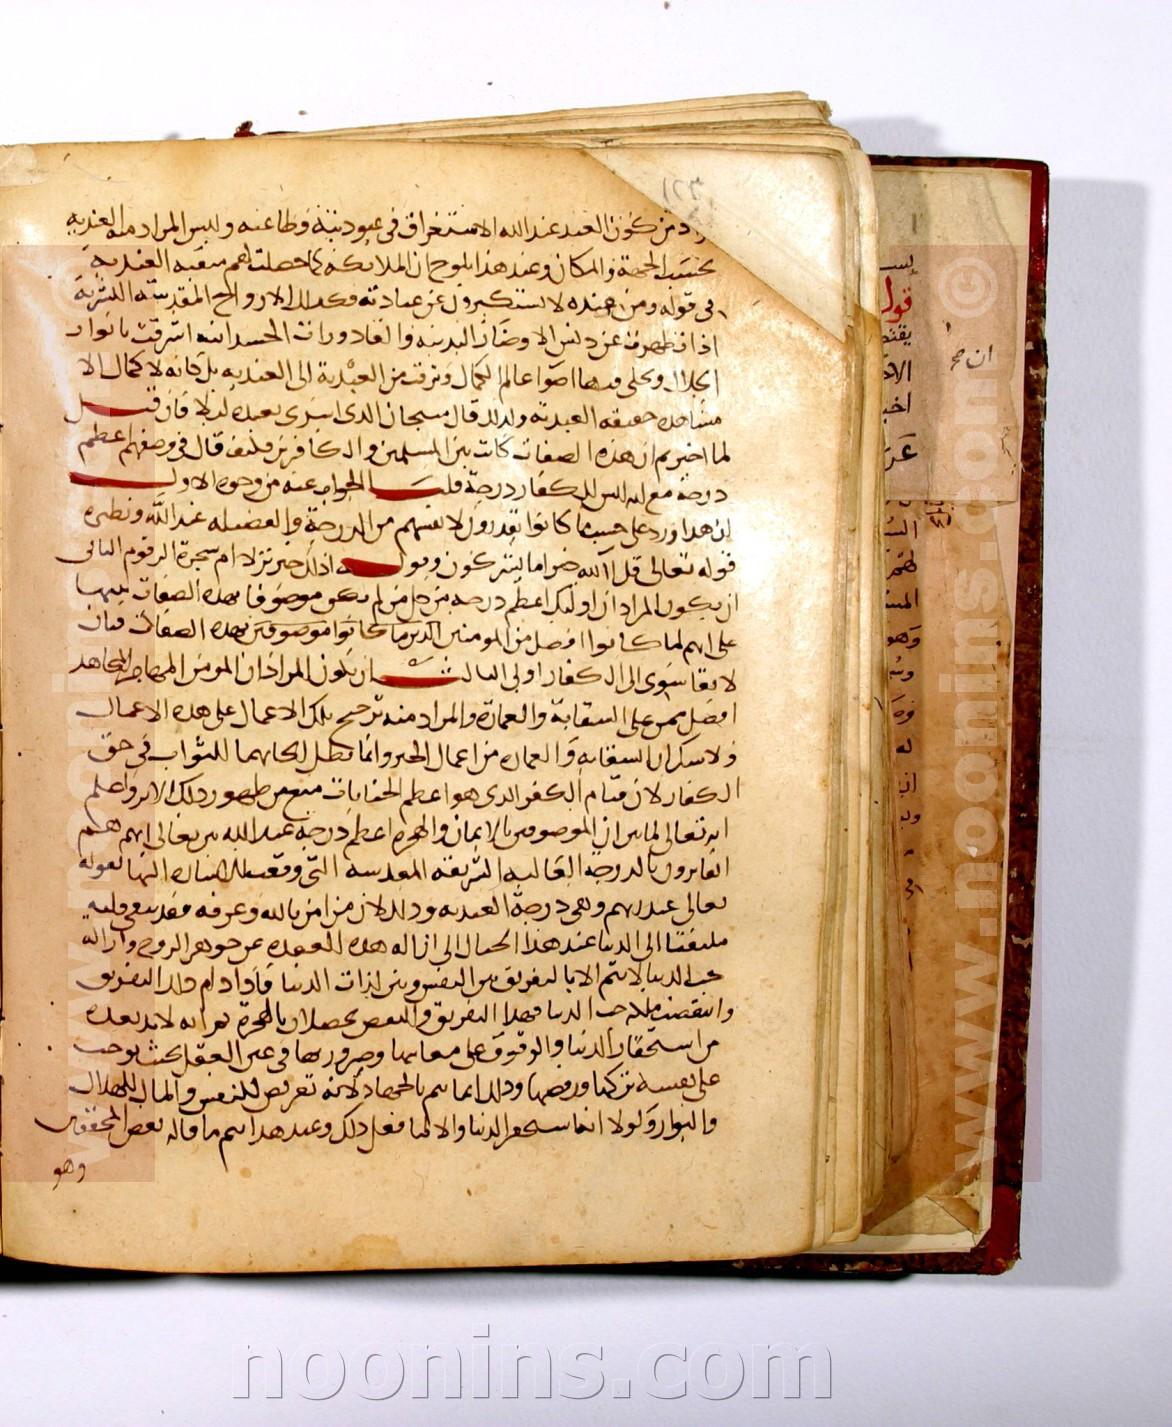 من كون العبد عند الله الاستغراق فى عبوديته وطاعته وليس المراد منه العنديه
بحسب الجهة والمكان وعند هذا يلوح ان الملايكة كما حصلت لهم منقبه العنديه
فى قوله ومن عنده لا يستكبرون عن عبادته فكذلك الارواح المقدسة البشرية
اذا تطهرت عن دنس الاوصاف البدنية والقاذورات الجسدانيه اشرقت بانوار
الجلال وتجلى فيها اضوا عالم الكمال وترقت من العبدية الى العنديه بل كانه لا كمال الا
مشاهدة حقيقه العبديه ولذلك قال سبحان الذى اسرى بعبده ليلا فان قيل
لما اخبرتم ان هذه الصفات كانت بين المسلمين والكافرين فكيف قال فى وصفهم اعظم
درجة مع انه ليس للكفار درجة قلنا الجواب عنه من وجوه الاول
ان هذا ورد على حسب ما كانوا يقدرون لانفسهم من الدرجة والفضيله عند الله ونظيره
قوله تعالى قل آلله خير اما يشركون وقوله اذلك خير نزلا ام شجرة الزقوم الثانى
ان يكون المراد ان اوليك اعظم درجه من كل من لم يكن موصوفا بهذه الصفات تنبيها
على انهم لما كانوا افضل من المومنين الذين ما كانوا موصوفين بهذه الصفات فبان
لا يقاسوى الى الكفار اولى الثالث ان يكون المراد ان المومن المهاجر المجاهد
افضل ممن على السقاية والعمارة والمراد منه ترجيح تلك الاعمال على هذه الاعمال
ولا شك ان السقايه والعماره من اعمال الخير وانما بطل ايجابهما للثواب فى حق
الكفار لان قيام الكفر الذى هو اعظم الجنايات منع من ظهور ذلك الاثر واعلم
انه تعالى لما بين ان الموصوفين بالايمان والهجرة اعظم درجة عند الله بين تعالى انهم هم
الفايزون بالدرجة العاليه الشريفة المقدسه التى وقعت الاشاره اليها بقوله
تعالى عند ربهم وهى درجة العنديه وذلك لان من امن بالله وعرفه فقد يبقى قلبه
ملتفتا الى الدنيا عند هذا الحال الى ازاله هذه العقده عن جوهر الروح وازاله
حب الدنيا لا يتم الا بالتفريق بين النفس وبين لذات الدنيا فاذا دام ذلك التفريق
وانتقض حب الدنيا فهذا التفريق والنقص يحصلان بالهجرة ثم انه لا بد بعده
من استحقار الدنيا والوقوف على معايبها وصيرورتها فى عين العقل بحيث يوجب
على نفسه تركها ورفضها وذلك انما يتم بالجهاد لانه تعريض للنفس والمال للهلاك
والبوار ولولا انه استحقر الدنيا والا لما فعل ذلك وعند هذا يتم ما قاله بعض المحققين
وهو
ان صح
قول
noonins.com
www.noonins.com ©